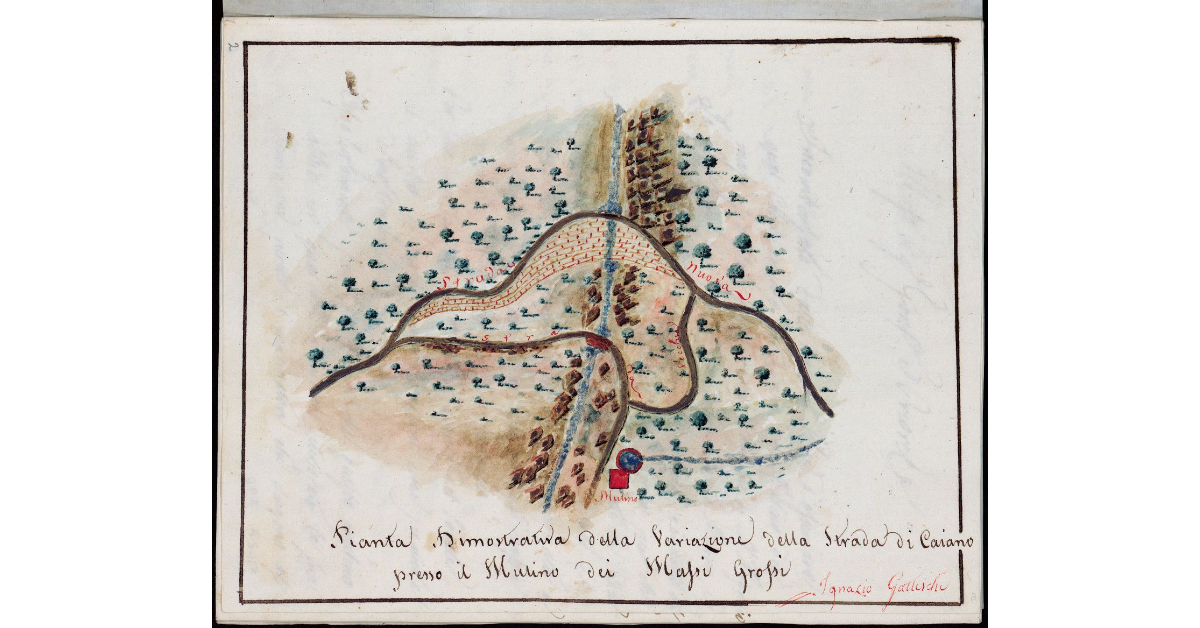 2
Strada nuova
Stra
vecchia
Mulino
Pianta Dimostrativa della Variazione della Strada di Caiano
presso il Mulino dei Massi Grossi
Ignazio Galleschi